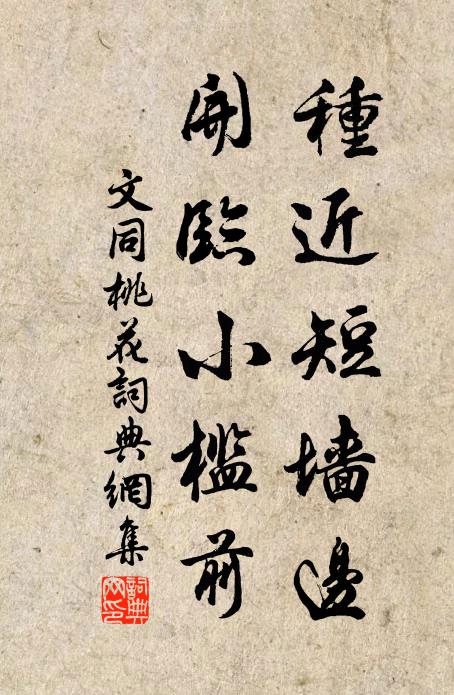 種近短墻邊
開臨小檻前
文同桃花詞典網集
詞典
网印